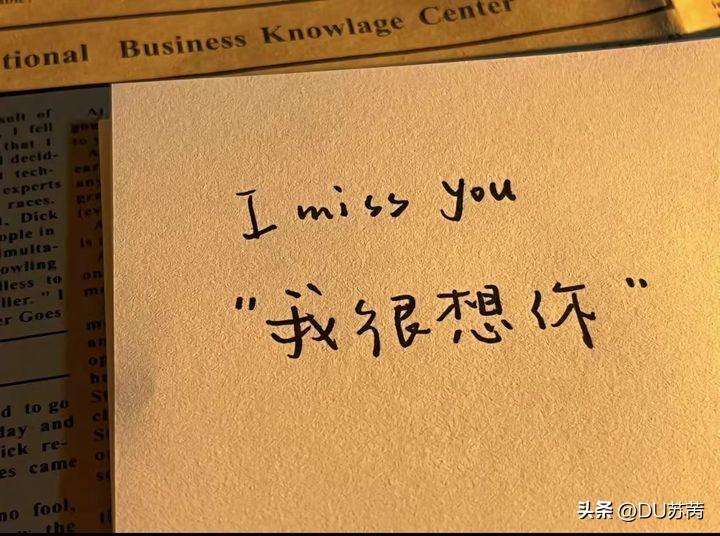 tional Business Knowlage Center
sult of
I fell
that I
decid-
tech-
experts
races.
Dick
ople in
imulta-
owling
dless to
lier." I
er Goes
d to go
day and
ick re-
es came
no fool,
the
I miss you
"我很想你"
头条 @DU苏苒